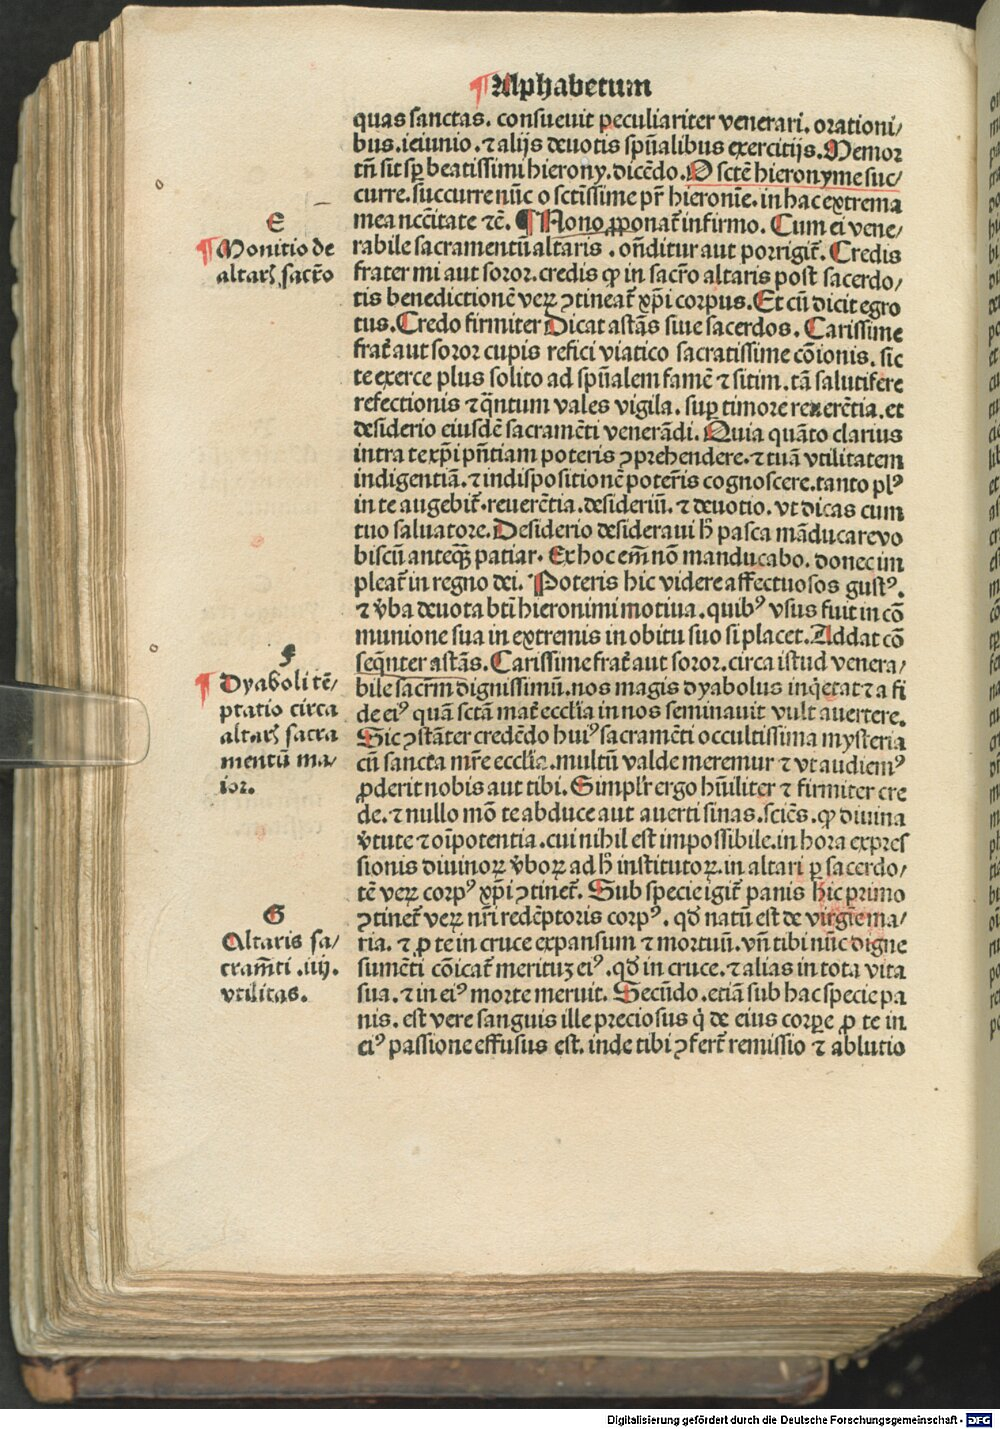 ¶Alphabetum
quas sanctas. consueuit peculiariter venerari. orationi/
bus. ieiunio. ⁊ alijs deuotis spũalibus exercitijs. Memor
tñ sit sꝑ beatissimi hierony. dicẽdo. O sctẽ hieronyme suc/
curre. succurre nũc o sctĩssime pr̃ hieronĩe. in hac extrema
mea ncc̃itate ⁊c̃. ¶ Nono ꝓponat̃ infirmo. Cum ei vene/
rabile sacramentũ altaris. oñditur aut porrigit̃. Credis
frater mi aut soror. credis ꝙ in sacr̃o altaris post sacerdo/
tis benedictionẽ veꝝ ↄtineat̃ xp̃i corpus. Et cũ dicit egro
tus. Credo firmiter Dicat astãs siue sacerdos. Carissime
frat̃ aut soror cupis refici viatico sacratissime cõionis. sic
te exerce plus solito ad spũalem famẽ ⁊ sitim. tã salutifere
refectionis ⁊ q̃ntum vales vigila. suꝑ timore reuerẽtia. et
desiderio eiusdẽ sacramẽti venerãdi. Quia quãto clarius
intra te xp̃i pñtiam poteris ↄprehendere. ⁊ tuã vtilitatem
indigentiã. ⁊ indispositionẽ poter̃is cognoscere. tanto plꝰ
in te augebit̃. reuerẽtia. desideriũ. ⁊ deuotio. vt dicas cum
tuo saluatore. Desiderio desideraui h̃ pasca mãducare vo
biscũ anteq̃ꝫ patiar. Ex hoc em̃ nõ manducabo. donec im
pleat̃ in regno dei. Poteris hic videre affectuosos gustꝰ.
⁊ v̾ba deuota bt̃i hieronimi motiua. quibꝰ vsus fuit in cõ
munione sua in extremis in obitu suo si placet. Addat cõ
seq̃nter astãs. Carissime frat̃ aut soror. circa istud venera/
bile sacr̃m dignissimũ. nos magis dyabolus inq̇etat ⁊ a fi
de eiꝰ quã sctã mat̃ eccl̃ia in nos seminauit vult auertere.
Sic ↄstãter credẽdo huiꝰ sacramẽti occultissima mysteria
cũ sancta mr̃e eccl̃ia. multũ valde meremur ⁊ vt audiemꝰ
ꝓderit nobis aut tibi. Simpl̃r ergo hũiliter ⁊ firmiter cre
de. ⁊ nullo mõ te abduce aut auerti sinas. sciẽs. ꝙ diuina
v̾tute ⁊ oĩpotentia. cui nihil est impossibile. in hora expres
sionis diuinoꝝ v̾boꝝ ad h̃ institutoꝝ. in altari ꝑ sacerdo/
tẽ veꝝ corpꝰ xp̃i ↄtinet̃. Sub specie igit̃ panis hic primo
ↄtinet̃ veꝝ nr̃i redẽptoris corpꝰ. qđ natũ est de virgĩe ma/
ria. ⁊ ꝓ te in cruce expansum ⁊ mortuũ. vñ tibi nũc digne
sumẽti cõicat̃ merituꝫ eiꝰ. qđ in cruce. ⁊ alias in tota vita
sua. ⁊ in eiꝰ morte meruit. Secũdo. etiã sub hac specie pa
nis. est vere sanguis ille preciosus q̇ de eius corꝑe ꝓ te in
eiꝰ passione effusus est. inde tibi ↄfert̃ remissio ⁊ ablutio
E
¶Monitio de
altarꝭ sacr̃o
F
¶ Dyaboli tẽ/
ptatio circa
altarꝭ sacra
mentũ ma/
ior.
G
Altaris sa/
cram̃ti .iij.
vtilitas.
Digitalisierung gefördert durch die Deutsche Forschungsgemeinschaft - DFG